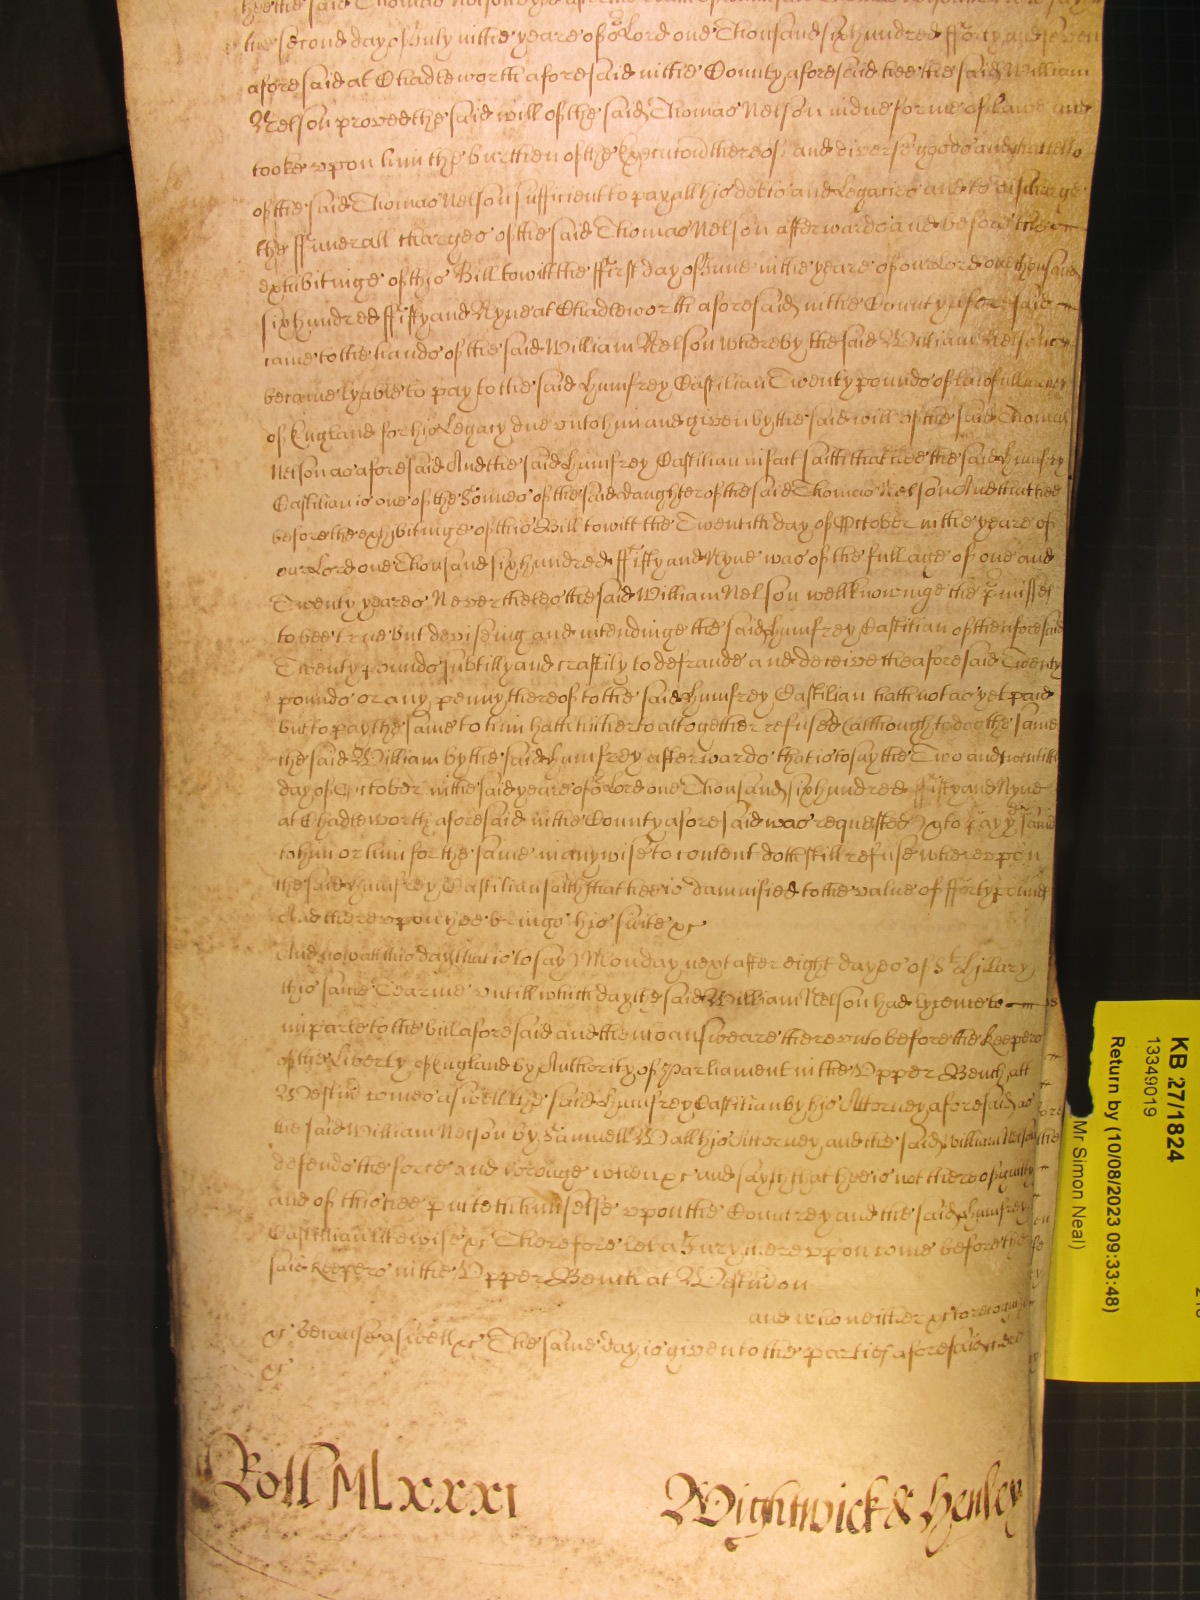 hee the said Thomas Nelson
the second day of July in the yeare of or Lord one Thousand six hundred fforty and seven
aforesaid at Chadleworth aforesaid in the County aforesaid hee the said William
Nelson proved the said will of the said Thomas Nelson in due forme of Lawe and
tooke vpon him the burthen of the Execution thereof and diverse goods and chattells
of the said Thomas Nelson sufficient to pay all his debts and Legacies and to discharge
the ffunerall charges of the said Thomas Nelson afterwards and before the
exhibitinge of this Bill to witt the ffirst day of June in the yeare of our Lord one thousand
six hundred ffifty and Nyne at Chadleworth aforesaid in the County aforesaid
came to the hands of the said William Nelson whereby the said William Nelson
became lyable to pay to the said Humfrey Castilian Twenty pounds of lawfull money
of England for his Legacy due vnto him and given by the said will of the said Thomas
Nelson as aforesaid And the said Humfrey Castilian in fact saith that hee the said Humfrey
Castilian is one of the Sonnes of the said daughter of the said Thomas Nelson And that hee
before the exhibitinge of this Bill to witt the Twentith day of October in the yeare of
our Lord one Thousand six hundred ffifty and Nyne was of the full age of one and
Twenty yeares Neverthelesse the said William Nelson well knowinge the pmisses
to bee true but deviseing and intendinge the said Humfrey Castilian of the aforesaid
Twenty pounds subtilly and craftily to defraude and deceive the aforesaid Twenty
pounds or any penny thereof to the said Humfrey Castilian hath not as yet paid
but to pay the same to him hath hitherto altogether refused (although to doe the same
the said William by the said Humfrey afterwards that is to say the Two and twentith
day of October in the said yeare of or Lord one Thousand six hundred ffifty and Nyne
at Chadleworth aforesaid in the County aforesaid was requested) & to pay ye said
to him or him for the same in any wise to content doth still refuse wherevpon
the said Humfrey Castilian saith that hee is damnified to the value of fforty pounds
And therevpon hee brings his suite &c
And now att this day (that is to say) Monday next after eight dayes of St Hillary
this same Tearme vntill which day the said William Nelson had lycence to
imparle to the bill aforesaid and then to answeare therevnto before the Keepers
of the Liberty of England by Authority of Parliament in the Vpper Bench att
Westmr comes aswell the said Humfrey Castilian by his Attorney aforesaid as
the said William Nelson by Samuell Wall his Attorney and the said William Nelson
defends the force and wronge when &c and sayth that hee is not thereof guilty
and of this hee putteth himselfe vpon the Countrey and the said Humfrey
Castillian likewise &c Therefore let a Jury therevpon come before the
said Keepers in the Vpper Bench at Westm on
and who neither &c to recognize
&c because aswell &c The same day is given to the parties aforesaid there
&c
Roll MLxxxi Wightwick & Henley
KB 27/1824
13349019
Return by (10/08/2023 09:33:48)
Mr Simon Neal)